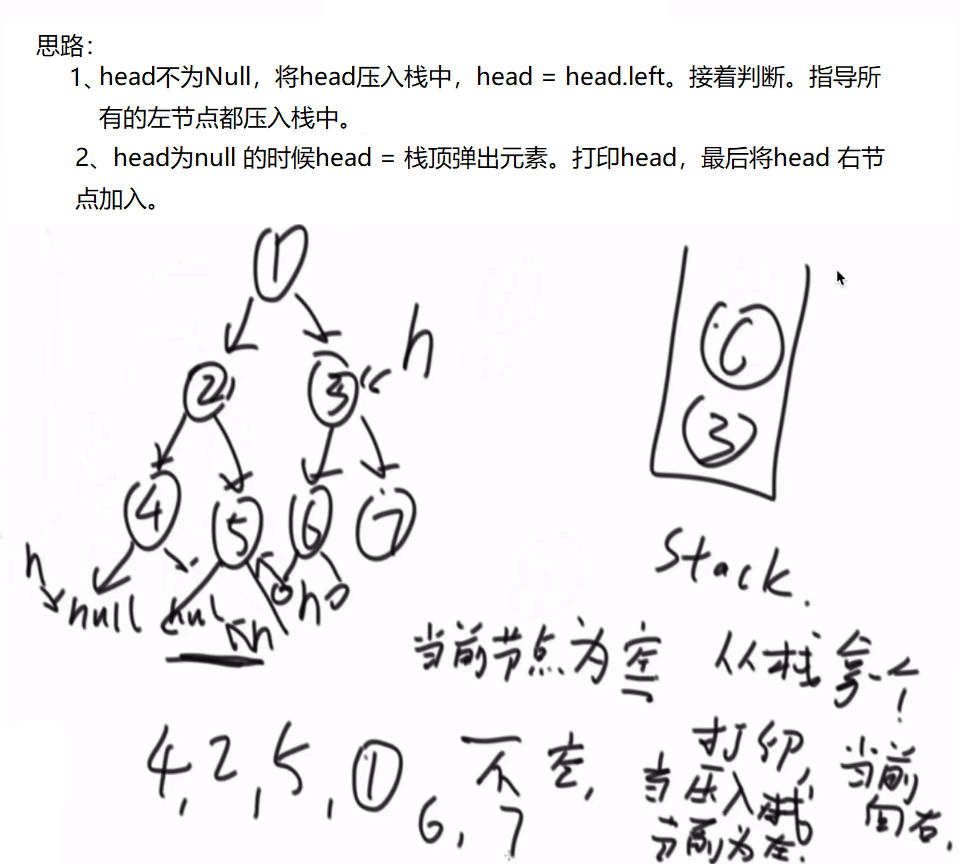 思路：
1、head不为Null，将head压入栈中，head = head.left。接着判断。指导所
有的左节点都压入栈中。
2、head为null 的时候head = 栈顶弹出元素。打印head，最后将head 右节
点加入。
1
h
2 3
6
3
4 5 6 7
h
null nul h h
stack.
当前节点为空 从栈拿一个!
4, 2, 5, 1
6, 7
不空,
打印, 当前
向右,
当 压入栈
节 前为左.